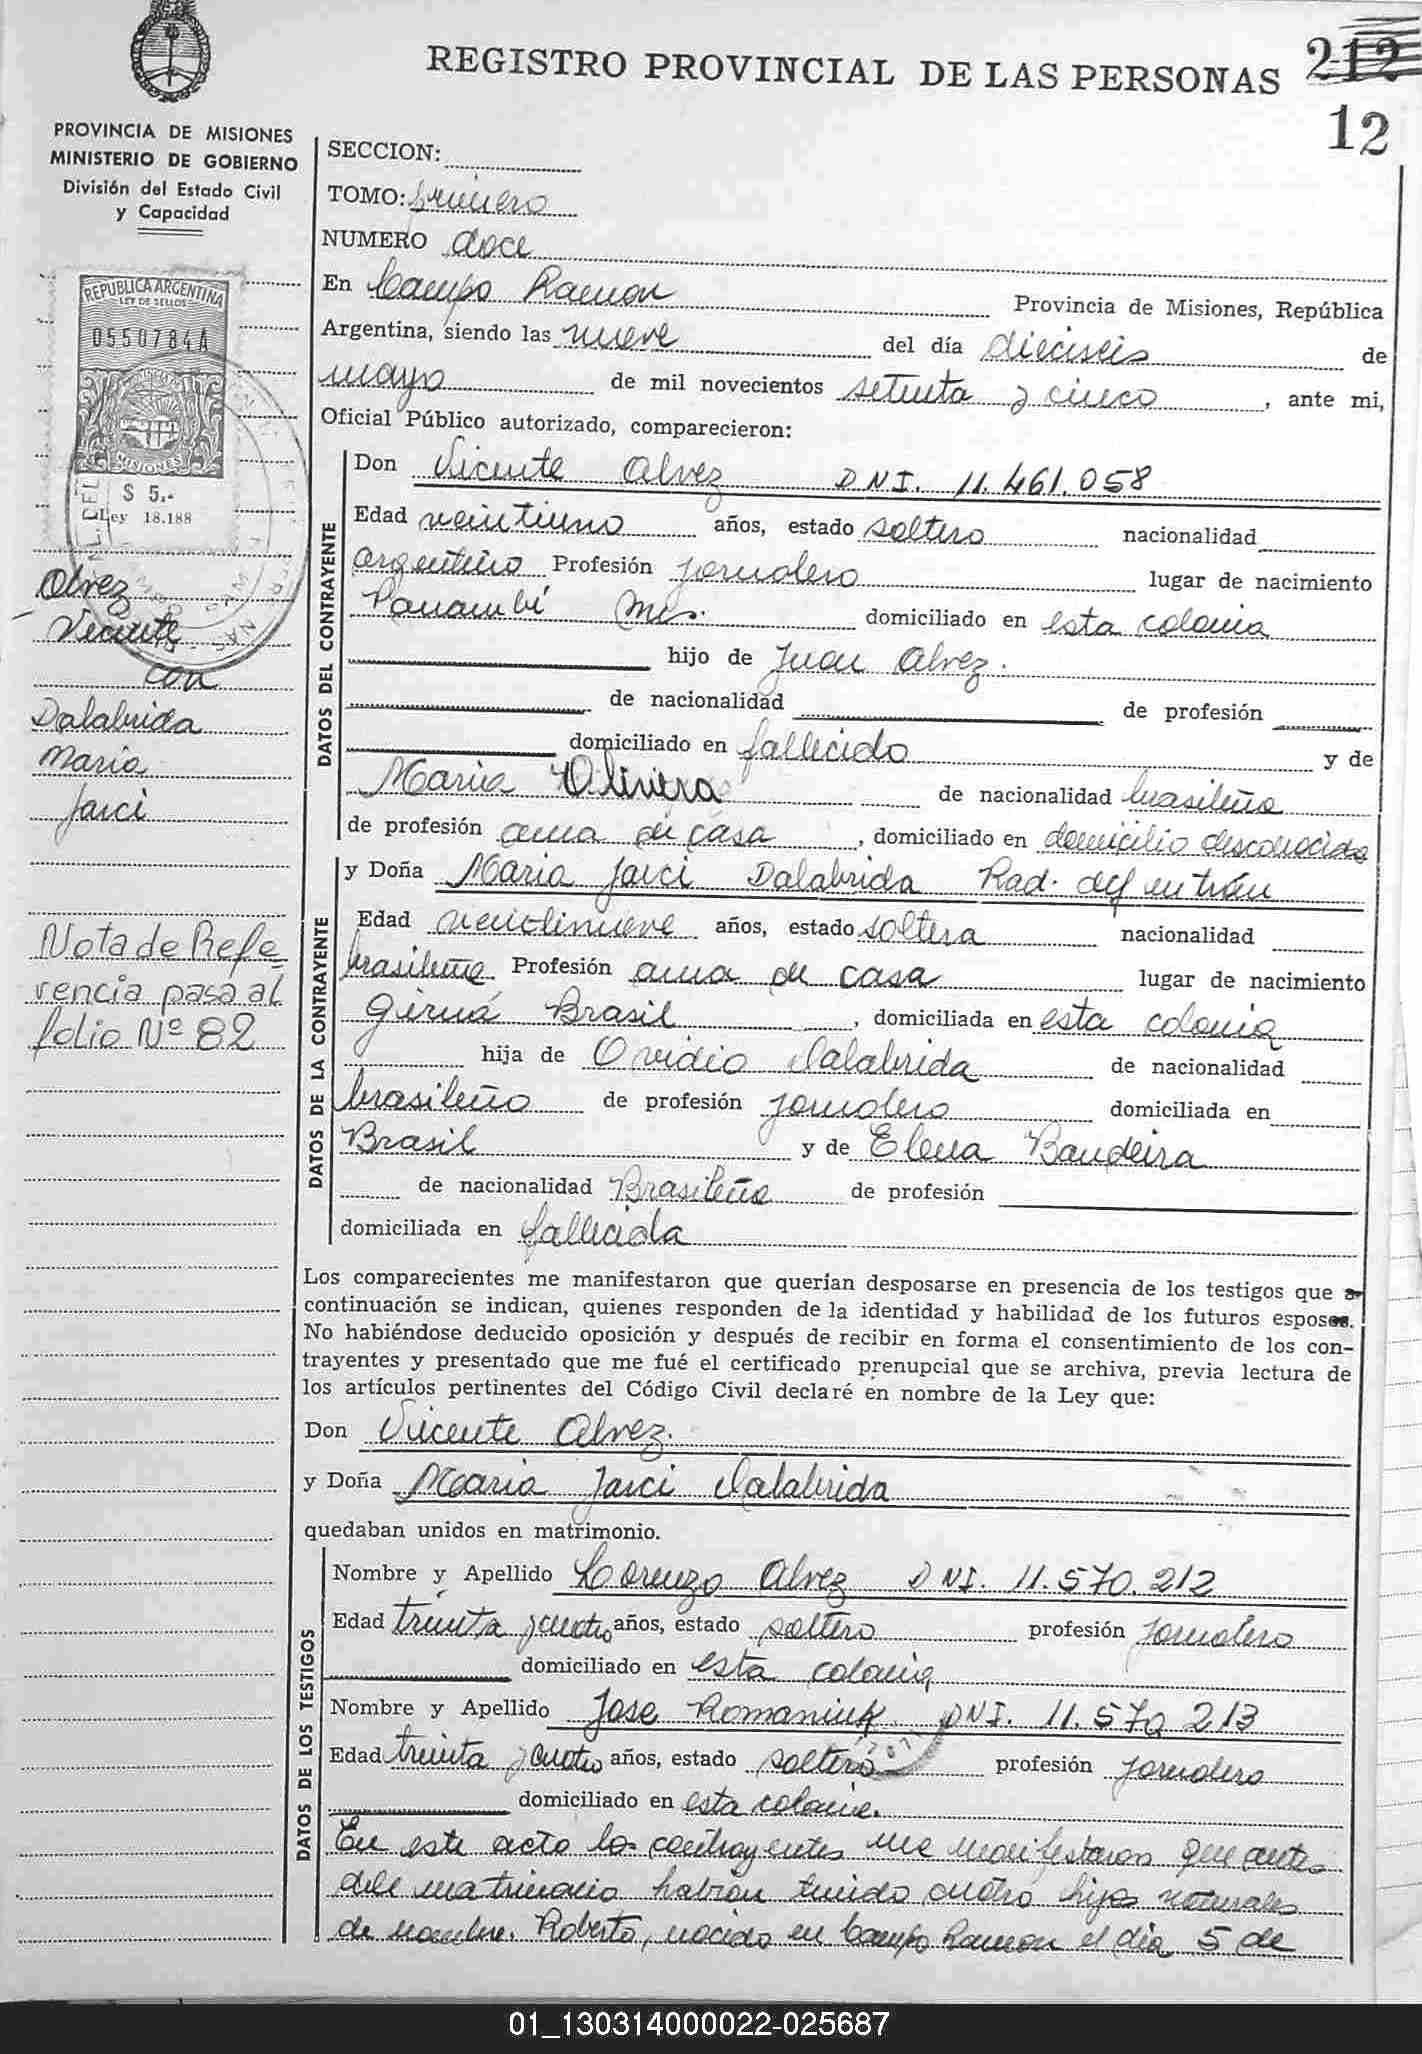 REGISTRO PROVINCIAL DE LAS PERSONAS
212
12
PROVINCIA DE MISIONES
MINISTERIO DE GOBIERNO
División del Estado Civil
y Capacidad
REPUBLICA ARGENTINA
LEY DE SELLOS
0550784A
MISIONES
$ 5,-
Ley 18.188
Alvez
Vicente
con
Dalabrida
Maria
Jarci
Nota de Refe
rencia pasa al
folio Nº 82
SECCION:
TOMO: primero
NUMERO doce
En Campo Ramon Provincia de Misiones, República
Argentina, siendo las nueve del día dieciseis de
mayo de mil novecientos setenta y cinco, ante mi,
Oficial Público autorizado, comparecieron:
DATOS DEL CONTRAYENTE
Don Vicente Alvez DNI. 11.461.058
Edad veintiuno años, estado soltero nacionalidad
argentino Profesión jornalero lugar de nacimiento
Panambí Mis. domiciliado en esta colonia
hijo de Juan Alvez.
de nacionalidad de profesión
domiciliado en fallecido y de
Maria Oliviera de nacionalidad brasileña
de profesión ama de casa, domiciliado en domicilio desconocido
DATOS DE LA CONTRAYENTE
y Doña Maria Jarci Dalabrida Rad. def en trán
Edad veintinueve años, estado soltera nacionalidad
brasileña Profesión ama de casa lugar de nacimiento
Giruá Brasil, domiciliada en esta colonia
hija de Ovidio Dalabrida de nacionalidad
brasileño de profesión jornalero domiciliada en
Brasil y de Elena Bandeira
de nacionalidad Brasileña de profesión
domiciliada en fallecida
Los comparecientes me manifestaron que querían desposarse en presencia de los testigos que a
continuación se indican, quienes responden de la identidad y habilidad de los futuros esposos.
No habiéndose deducido oposición y después de recibir en forma el consentimiento de los con-
trayentes y presentado que me fué el certificado prenupcial que se archiva, previa lectura de
los artículos pertinentes del Código Civil declaré en nombre de la Ley que:
Don Vicente Alvez.
y Doña Maria Jarci Dalabrida
quedaban unidos en matrimonio.
DATOS DE LOS TESTIGOS
Nombre y Apellido Lorenzo Alvez DNI. 11.570.212
Edad treinta y cuatro años, estado soltero profesión jornalero
domiciliado en esta colonia
Nombre y Apellido Jose Romaniuk DNI. 11.570.213
Edad treinta y cuatro años, estado soltero profesión jornalero
domiciliado en esta colonia.
En este acto los contrayentes me manifestaron que antes
del matrimonio habian tenido cuatro hijos naturales
de nombre. Roberto, nacido en Campo Ramon el dia 5 de
01_130314000022-025687